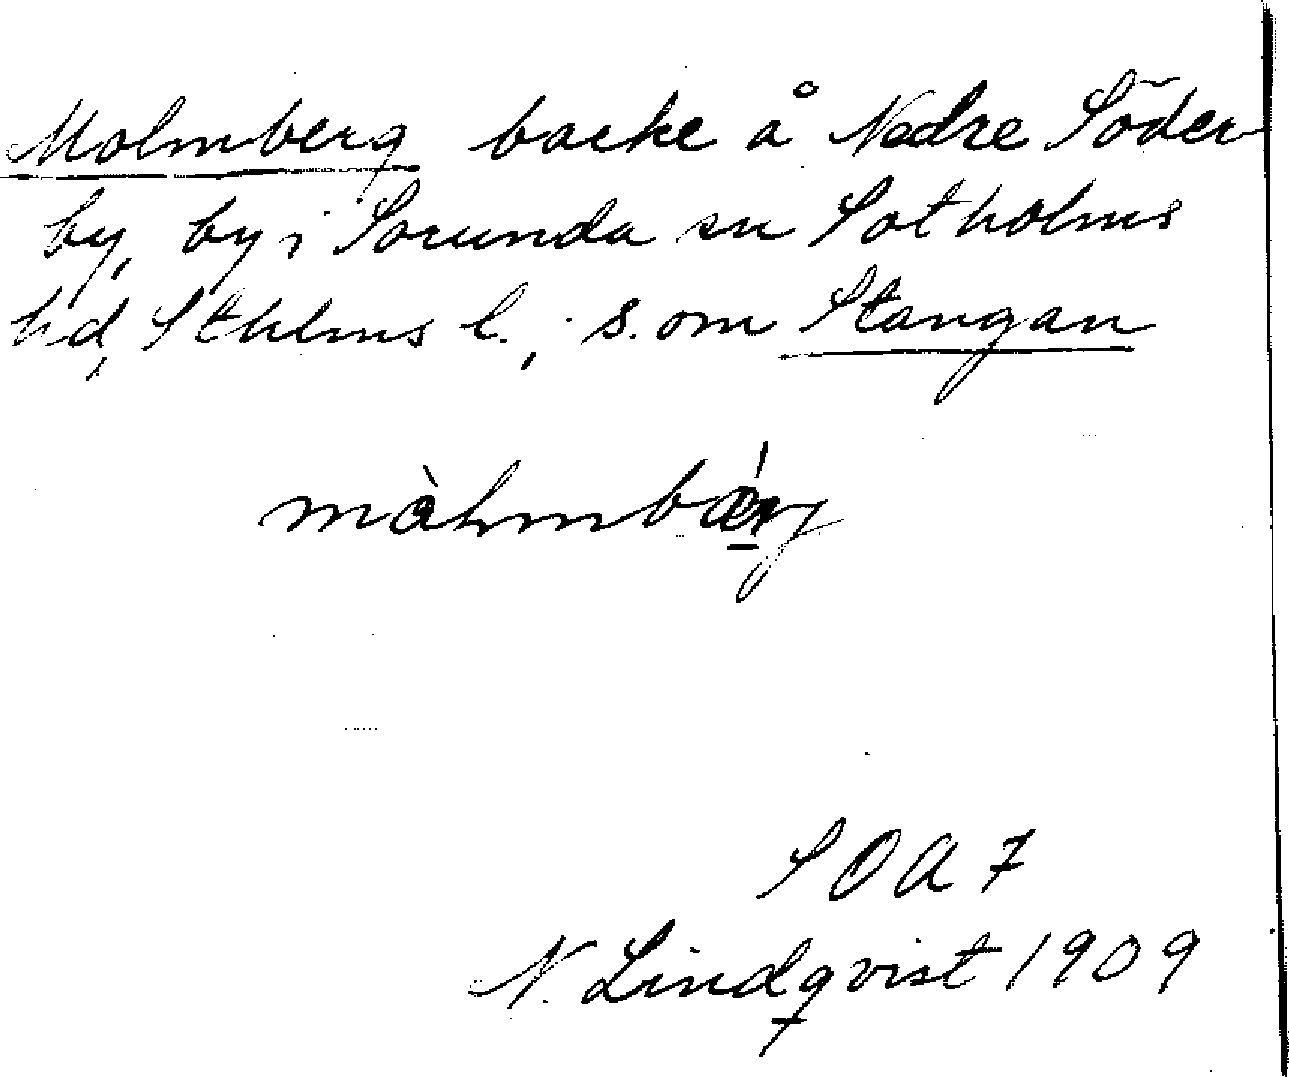 Molmberg backe å Nedre Söder-
by, by i Sorunda sn Sotholms
hd, Sthlms l., s. om Stangan
màlmbárj
SOA 7
N. Lindqvist 1909